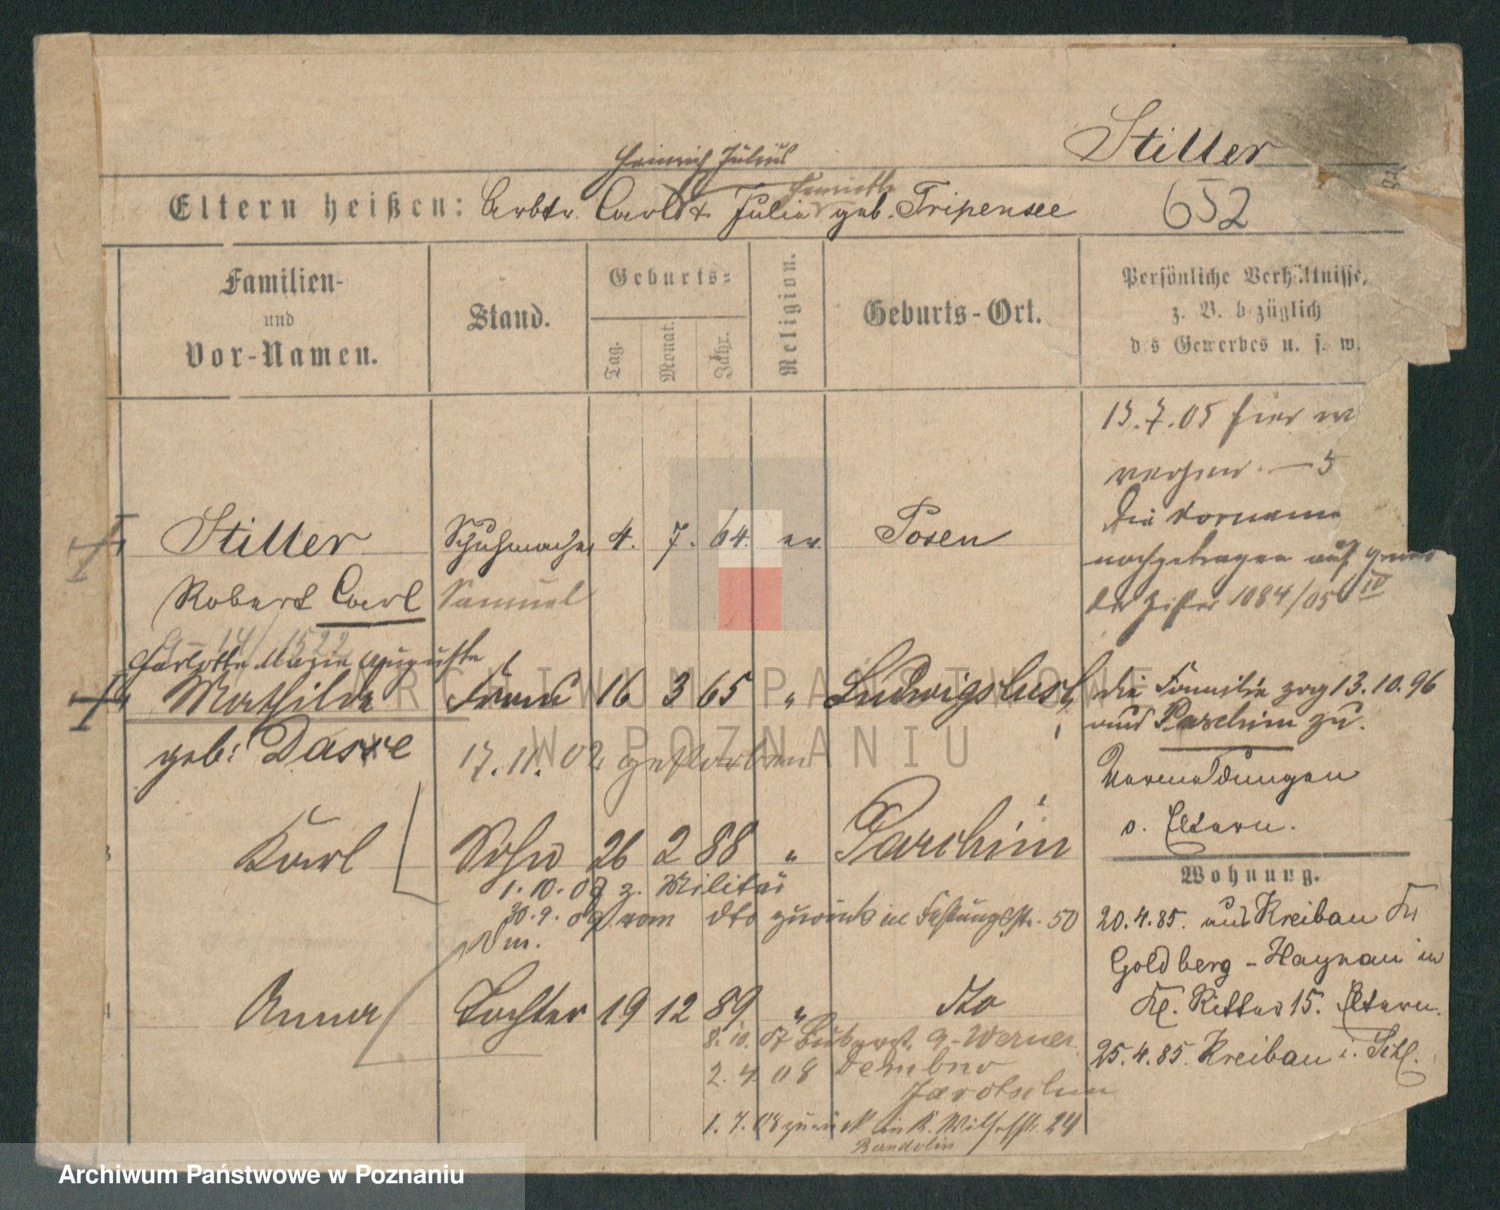 Stiller
Heinrich Julius
Henriette
Eltern heißen: Arbtr. Carl & Julie geb. Tripensee
652
Familien-
und
Vor-Namen.
Stand.
Geburts-
Tag.
Monat.
Jahr.
Religion.
Geburts-Ort.
Persönliche Verhältnisse,
z. B. bezüglich
des Gewerbes u. s. w.
13.7.05 hier
Die Vorname
nachgetragen auf Grund
der Ziffer 1084/05 IV
Stiller Schuhmacher 4. 7. 64. ev. Posen
Robert Carl Samuel
14/1522
Charlotte Marie Auguste
Mathilde Frau 16 3 65 " Ludwigslust
geb: Dasse 17.11.02 gestorben
die Familie zog 13.10.96
aus Parchim zu.
Vermeldungen
s. Eltern.
Karl Sohn 26 2 88 " Parchim
1.10.07 z. Militär
30.9.09 vom dto zurück in Festungsstr. 50
Anna Tochter 19 12 89 " dto
8.10.07 Werner
2.4.08 Dembno
Jarotschin
1.7.08 zurück in K. Wilhelmstr. 24
Bandelin
Wohnung.
20.4.85. aus Kreibau Kr
Goldberg-Haynau in
Kl. Ritter 15. Eltern.
25.4.85. Kreibau i. Schl.
ARCHIWUM PAŃSTWOWE
W POZNANIU
Archiwum Państwowe w Poznaniu